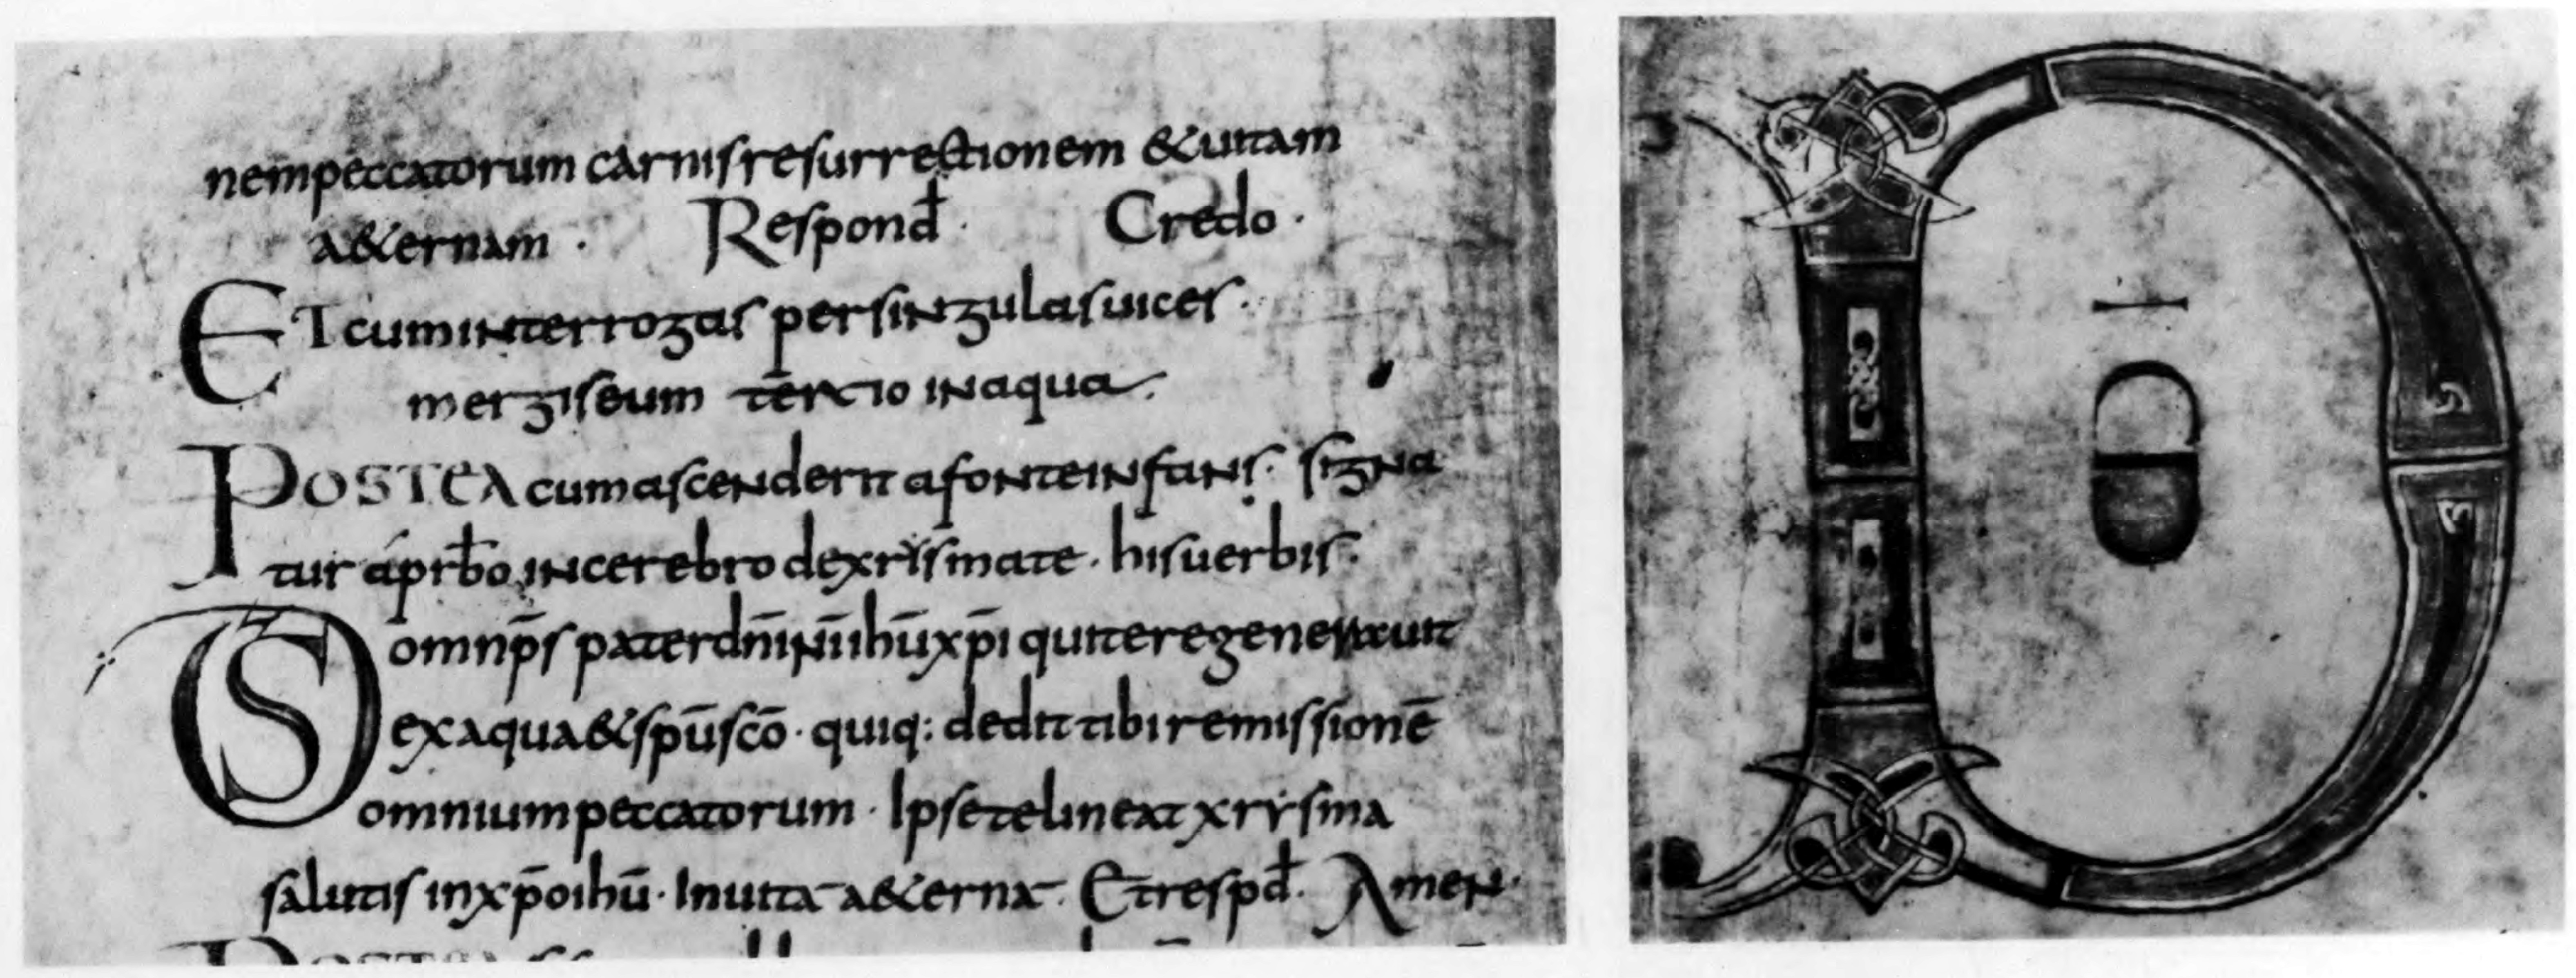 nem peccatorum carnis resurrectionem & uitam
a&ernam · Respond̄ · Credo ·
ET cum interrogas per singulas uices ·
mergis eum tertio in aqua ·
POSTEA cum ascenderit a fonte infans · signa
tur a prb̄o in cerebro de xrismate · his uerbis ·
DS omnip̄s pater dn̄i n̄i ihū xp̄i qui te regenerauit
ex aqua & spū scō · quiq: dedit tibi remissionē
omnium peccatorum · Ipse te lineat xrysma
salutis in xp̄o ihū · In uitā a&ernā · Et respd̄ · Amen ·
D